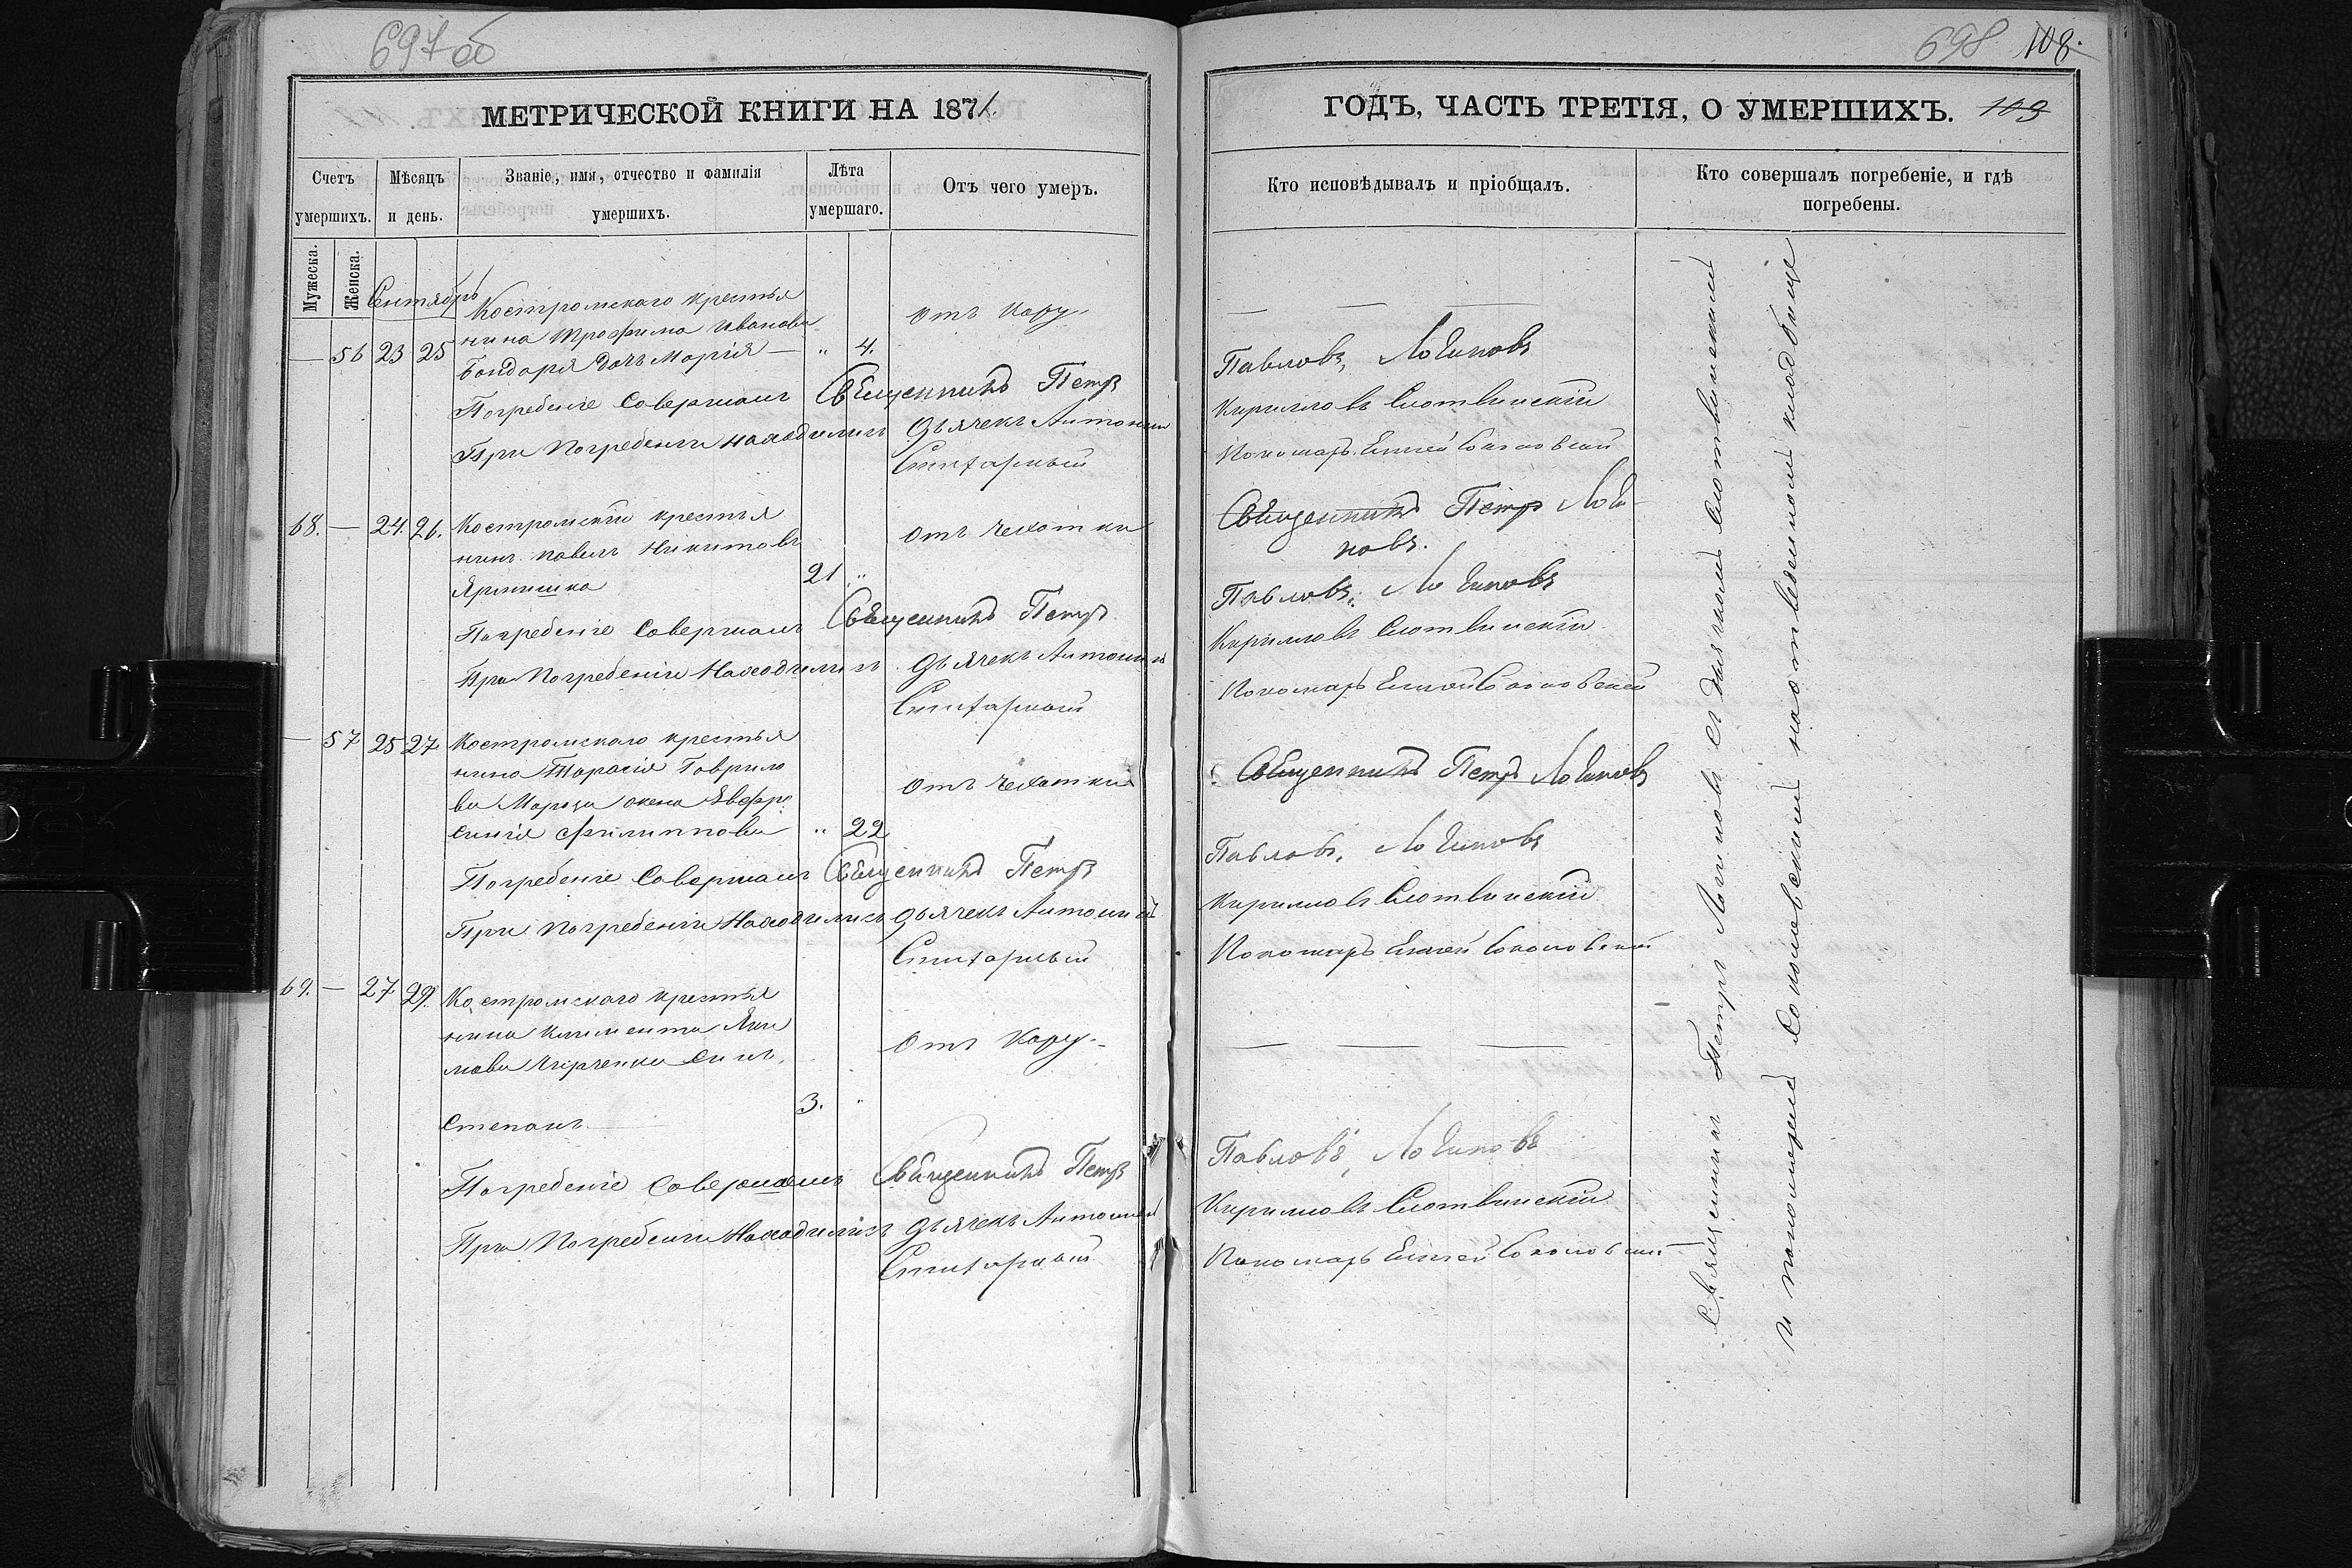 697об
МЕТРИЧЕСКОЙ КНИГИ НА 1871
Счетъ умершихъ.
Мѣсяцъ и день.
Званіе, имя, отчество и фамилія умершихъ.
Лѣта умершаго.
Отъ чего умеръ.
Мужеска.
Женска.
Сентябрь
Костромскаго крестья
нина Трофима Иванова
— 56 23 25 Бондаря дочь Марія — " 4.
отъ кору
Погребеніе совершалъ Священникъ Петръ
При погребеніи находились дьячекъ Антоній
68. — 24. 26. Костромскій крестья
нинъ Павелъ Никитовъ
отъ чехотки
21 "
Погребеніе совершалъ Священникъ Петръ
При погребеніи находились дьячекъ Антоній
— 57 25 27 Костромскаго крестья
нина Тарасія Гаврило
ва Мороза жена Евфро
синія Филиппова " 22
отъ чехотки
Погребеніе совершалъ Священникъ Петръ
При погребеніи находились дьячекъ Антоній
69. — 27 29. Костромскаго крестья
нина Климента Яки
мова Кирченка сынъ
Степанъ 3. "
отъ кору
Погребеніе совершалъ Священникъ Петръ
При погребеніи находились дьячекъ Антоній
698 108.
ГОДЪ, ЧАСТЬ ТРЕТІЯ, О УМЕРШИХЪ. 109
Кто исповѣдывалъ и пріобщалъ.
Кто совершалъ погребеніе, и гдѣ погребены.
Павловъ, Логиновъ
Кирилловъ Слотвинскій
Пономарь Елисей Соколовскій
Священникъ Петръ Логи-
новъ.
Павловъ, Логиновъ
Кирилловъ Слотвинскій
Пономарь Елисей Соколовскій
Священникъ Петръ Логиновъ
Павловъ, Логиновъ
Кирилловъ Слотвинскій
Пономарь Елисей Соколовскій
Павловъ, Логиновъ
Кирилловъ Слотвинскій
Пономарь Елисей Соколовскій
Священникъ Петръ Логиновъ съ дьячкомъ Слотвинскимъ
и пономаремъ Соколовскимъ на отведенномъ кладбище